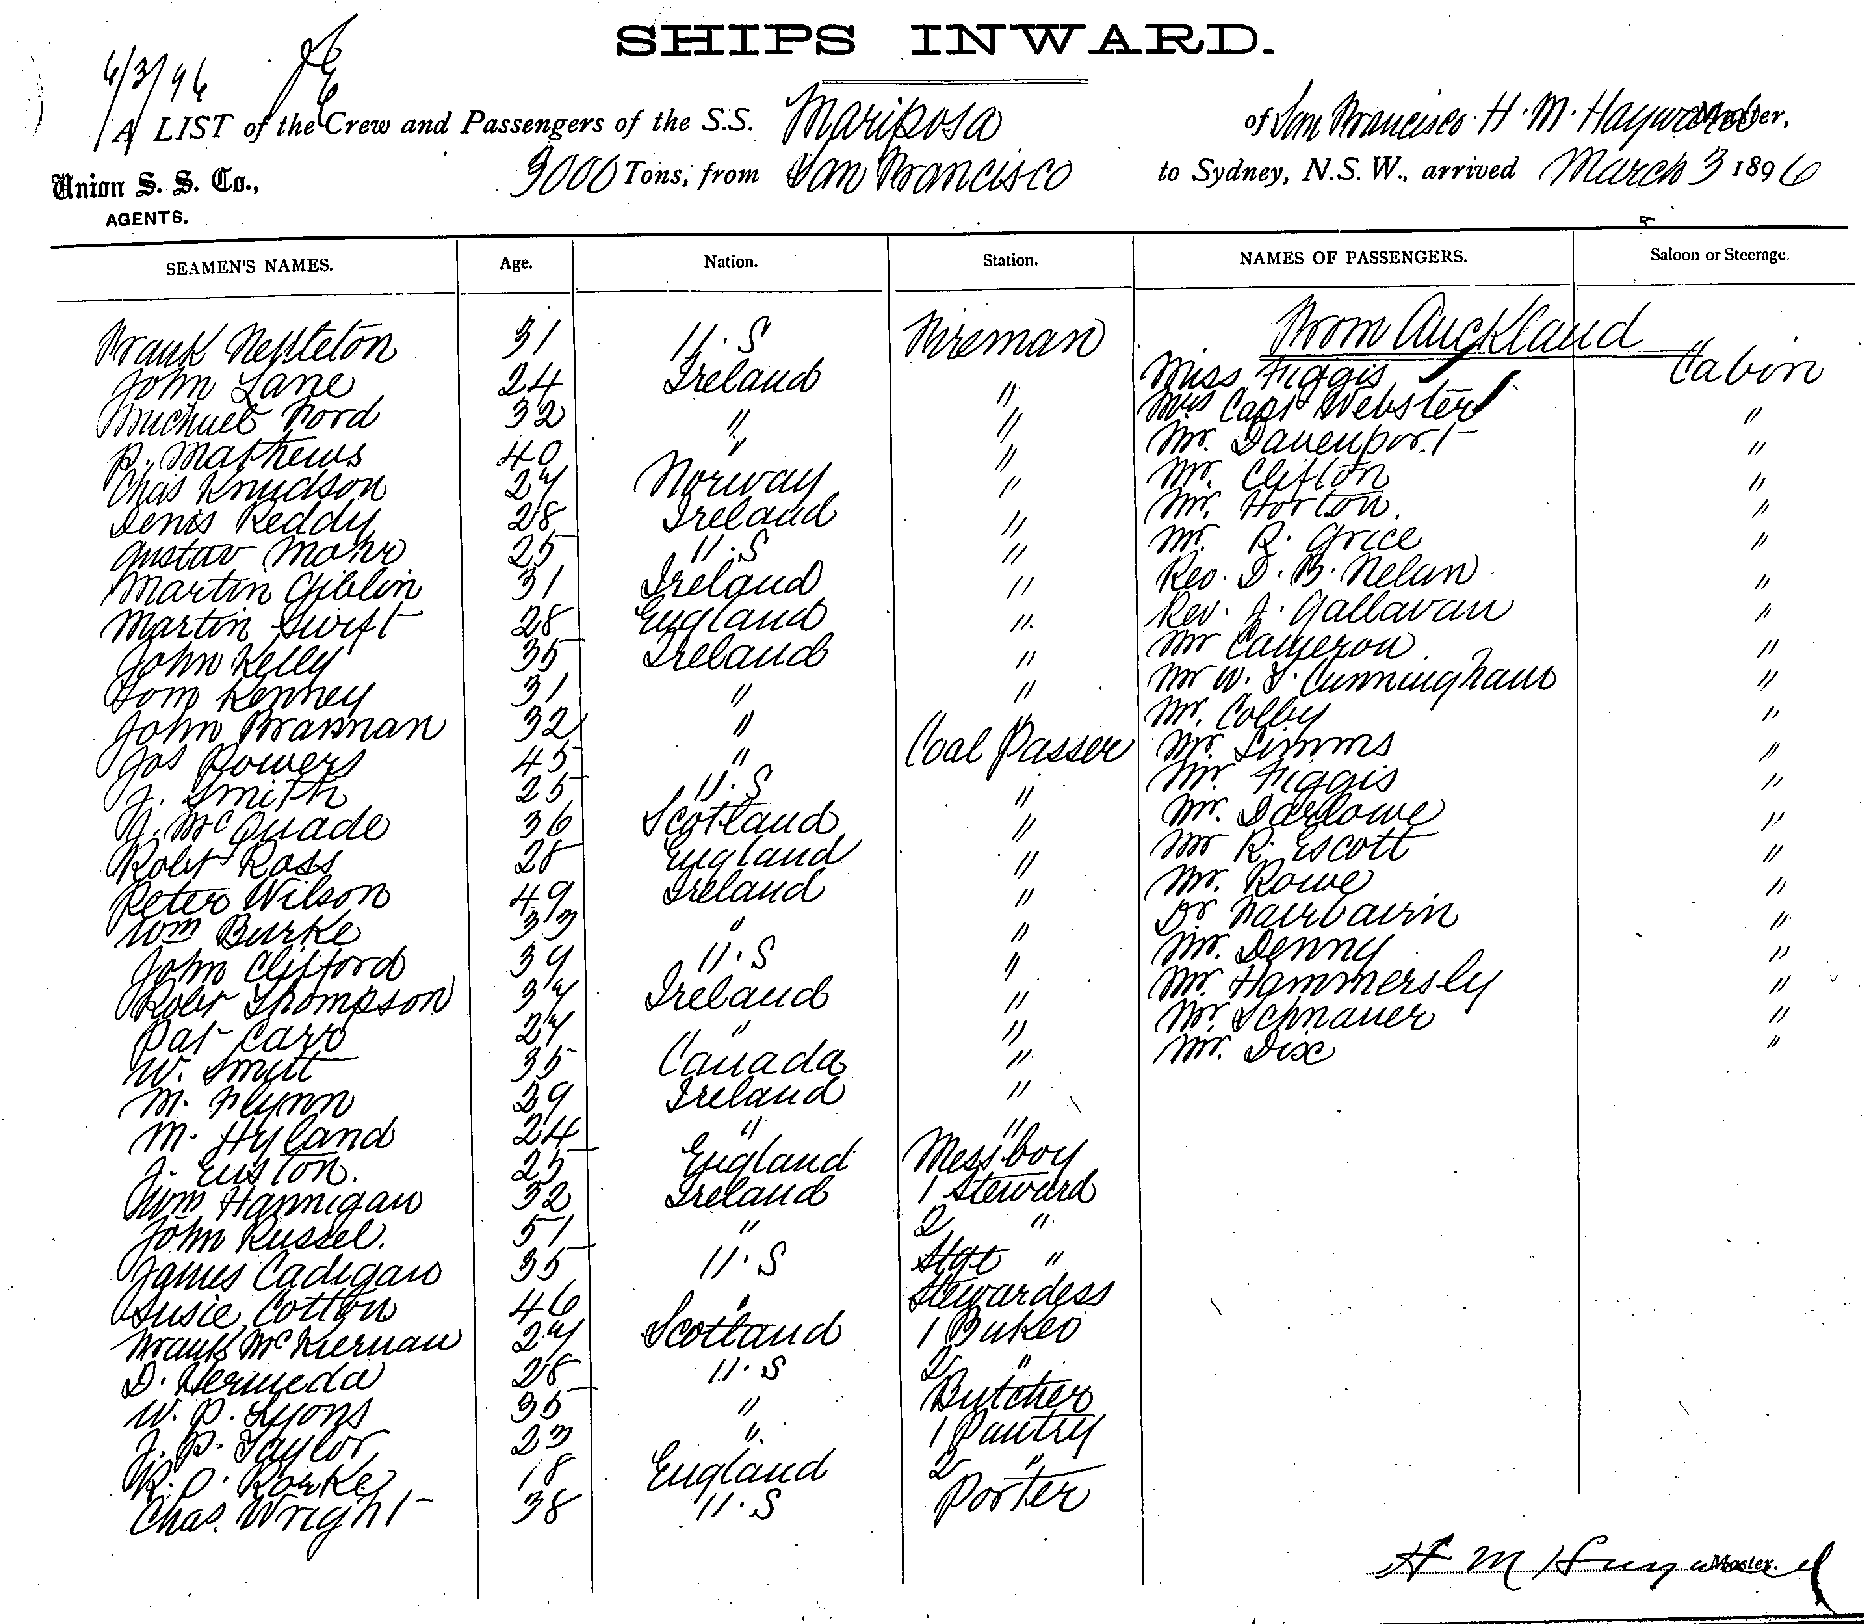 SHIPS INWARD.
6/3/96
A LIST of the Crew and Passengers of the S.S. Mariposa of San Francisco. H. M. Hayward Master,
3000 Tons, from San Francisco to Sydney, N.S.W., arrived March 3 1896
Union S. S. Co.,
AGENTS.
SEAMEN'S NAMES. Age. Nation. Station. NAMES OF PASSENGERS. Saloon or Steerage.
From Auckland
Frank Nettleton 31 U.S Fireman
John Lane 24 Ireland " Miss Figgis Cabin
Michael Ford 32 " " Mrs Capt Webster "
P. Mathews 40 " " Mr. Davenport "
Chas Knudson 27 Norway " Mr. Clifton "
Denis Reddy 28 Ireland " Mr. Horton. "
Gustav Mohr 25 U.S " Mr. R. Grice "
Martin Giblin 31 Ireland " Rev. D. B. Nelan "
Martin Swift 28 England " Rev. J. Gallavan "
John Kelly 35 Ireland " Mr Cameron "
Tom Kenney 31 " " Mr W. J. Cunningham "
John Brannan 32 " Mr. Colby "
Jas Powers 45 " Coal Passer Mr. Simms "
J. Smith 25 U.S " Mr. Figgis "
J. McQuade 36 Scotland " Mr. Darlowe "
Robt Ross 28 England " Mr R. Escott "
Peter Wilson 49 Ireland " Mr. Rowe "
Wm Burke 33 " " Dr Fairbairn "
John Clifford 39 U.S " Mr. Denny "
Robt Thompson 37 Ireland " Mr. Hammersly "
Pat Carr 27 " " Mr. Schnauer "
W. Smitt 35 Canada " Mr. Dix "
M. Flynn 29 Ireland "
M. Hyland 24 " "
J. Euston. 25 England Messboy
Wm Hannigan 32 Ireland 1 Steward
John Russel. 51 " 2 "
James Cadigan 35 U.S Stge "
Susie Cotton 46 " Stewardess
Frank McKiernan 27 Scotland 1 Baker
D. Hermeda 28 U.S 2 "
W. P. Lyons 35 " Butcher
J. P. Taylor 23 " 1 Pantry
R. O. Rorke 18 England 2 "
Chas. Wright 38 U.S Porter
H M Hayward Master.